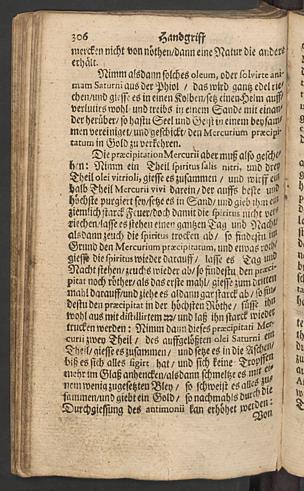 306 Handgriff
mercken nicht von nöthen / dann eine Natur die andere
erhält.
Nimm alsdann solches oleum, oder solvirte ani-
mam Saturni aus der Phiol / das wird gantz edel rie-
chen / und giesse es in einen Kolben / setz einen Helm auff /
verlutirs wohl und treibs in einem Sande mit einan-
der herüber / so hastu Seel und Geist in einem beysam-
men vereiniget / und geschickt / den Mercurium præcipi-
tatum in Gold zu verkehren.
Die præcipitation Mercurii aber muß also gesche-
hen: Nimm ein Theil spiritus salis nitri, und drey
Theil olei vitrioli, giesse es zusammen / und wirff ein
halb Theil Mercurii vivi darein / der auffs beste und
höchste purgiert sey / setze es in Sand / und gieb ihm ein
ziemlich starck Feuer / doch damit die spiritus nicht ver-
riechen / lasse es stehen einen gantzen Tag und Nacht /
alsdann zeuch die spiritus trocken ab / so findestu im
Grund den Mercurium præcipitatum, und etwas roth /
giesse die spiritus wieder darauff / lasse es Tag und
Nacht stehen / zeuchs wieder ab / so findestu den præci-
pitat noch röther / als das erste mahl / giesse zum dritten
mahl darauff / und ziehe es alsdann gar starck ab / so fin-
destu den præcipitat in der höchsten Röthe / süsse ihn
wohl aus mit distillirtem / und laß ihn starck wieder
trucken werden: Nimm dann dieses præcipitati Mer-
curii zwey Theil / des auffgelößten olei Saturni ein
Theil / giesse es zusammen / und setze es in die Aschen /
biß es sich alles figirt hat / und sich keine Tropffen
mehr im Glaß anhencken / alsdann schmeltze es mit ei-
nem wenig zugesetzten Bley / so schweist es alles zu-
sammen / und giebt ein Gold / so nachmahls durch die
Durchgiessung des antimonii kan erhöhet werden:
Von